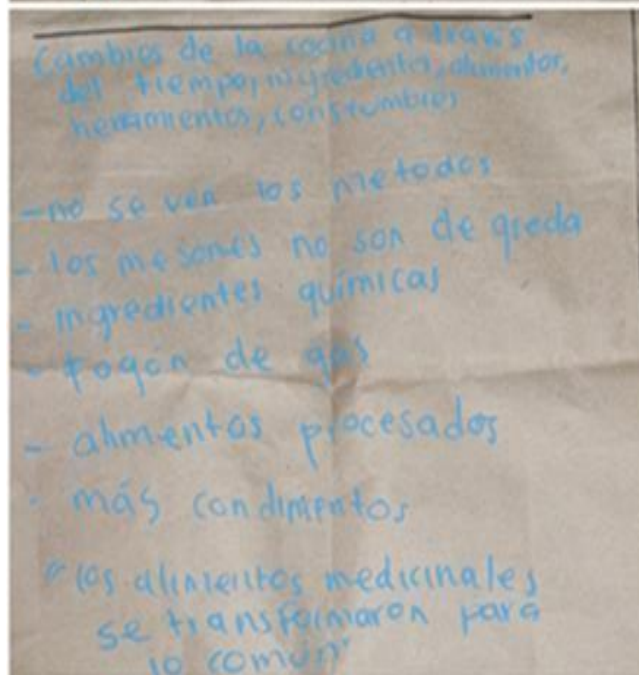 Cambios de la cocina a traves
del tiempo, ingredientes, alimentos,
herramientas, constumbres
- no se ven los metodos
- los mesones no son de greda
- ingredientes químicas
- fogón de gas
- alimentos procesados
- más condimentos
"los alimentos medicinales
se transformaron para
lo común"